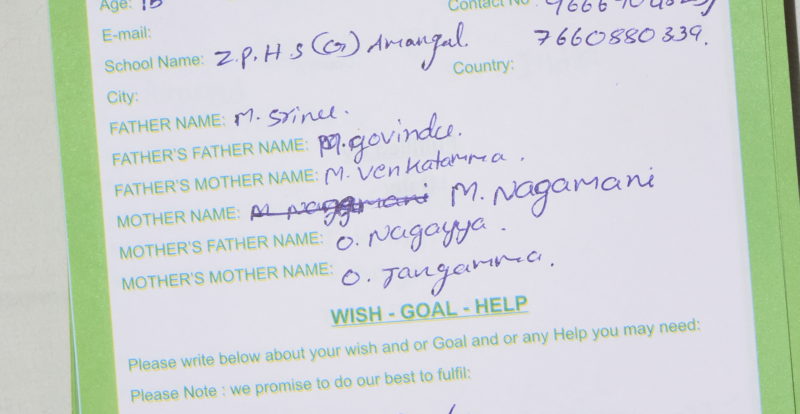 Age: 15
Contact No :
E-mail:
7660880339.
School Name: Z.P.H.S (G) Amangal.
Country:
City:
FATHER NAME: M. Srinu.
FATHER'S FATHER NAME: M. govindu.
FATHER'S MOTHER NAME: M. Venkatamma.
MOTHER NAME: M. Nagamani M. Nagamani
MOTHER'S FATHER NAME: O. Nagayya.
MOTHER'S MOTHER NAME: O. Jangamma.
WISH - GOAL - HELP
Please write below about your wish and or Goal and or any Help you may need:
Please Note : we promise to do our best to fulfil: